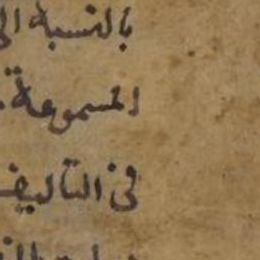 بالنسبة الى
المسموعة
فى التاليف